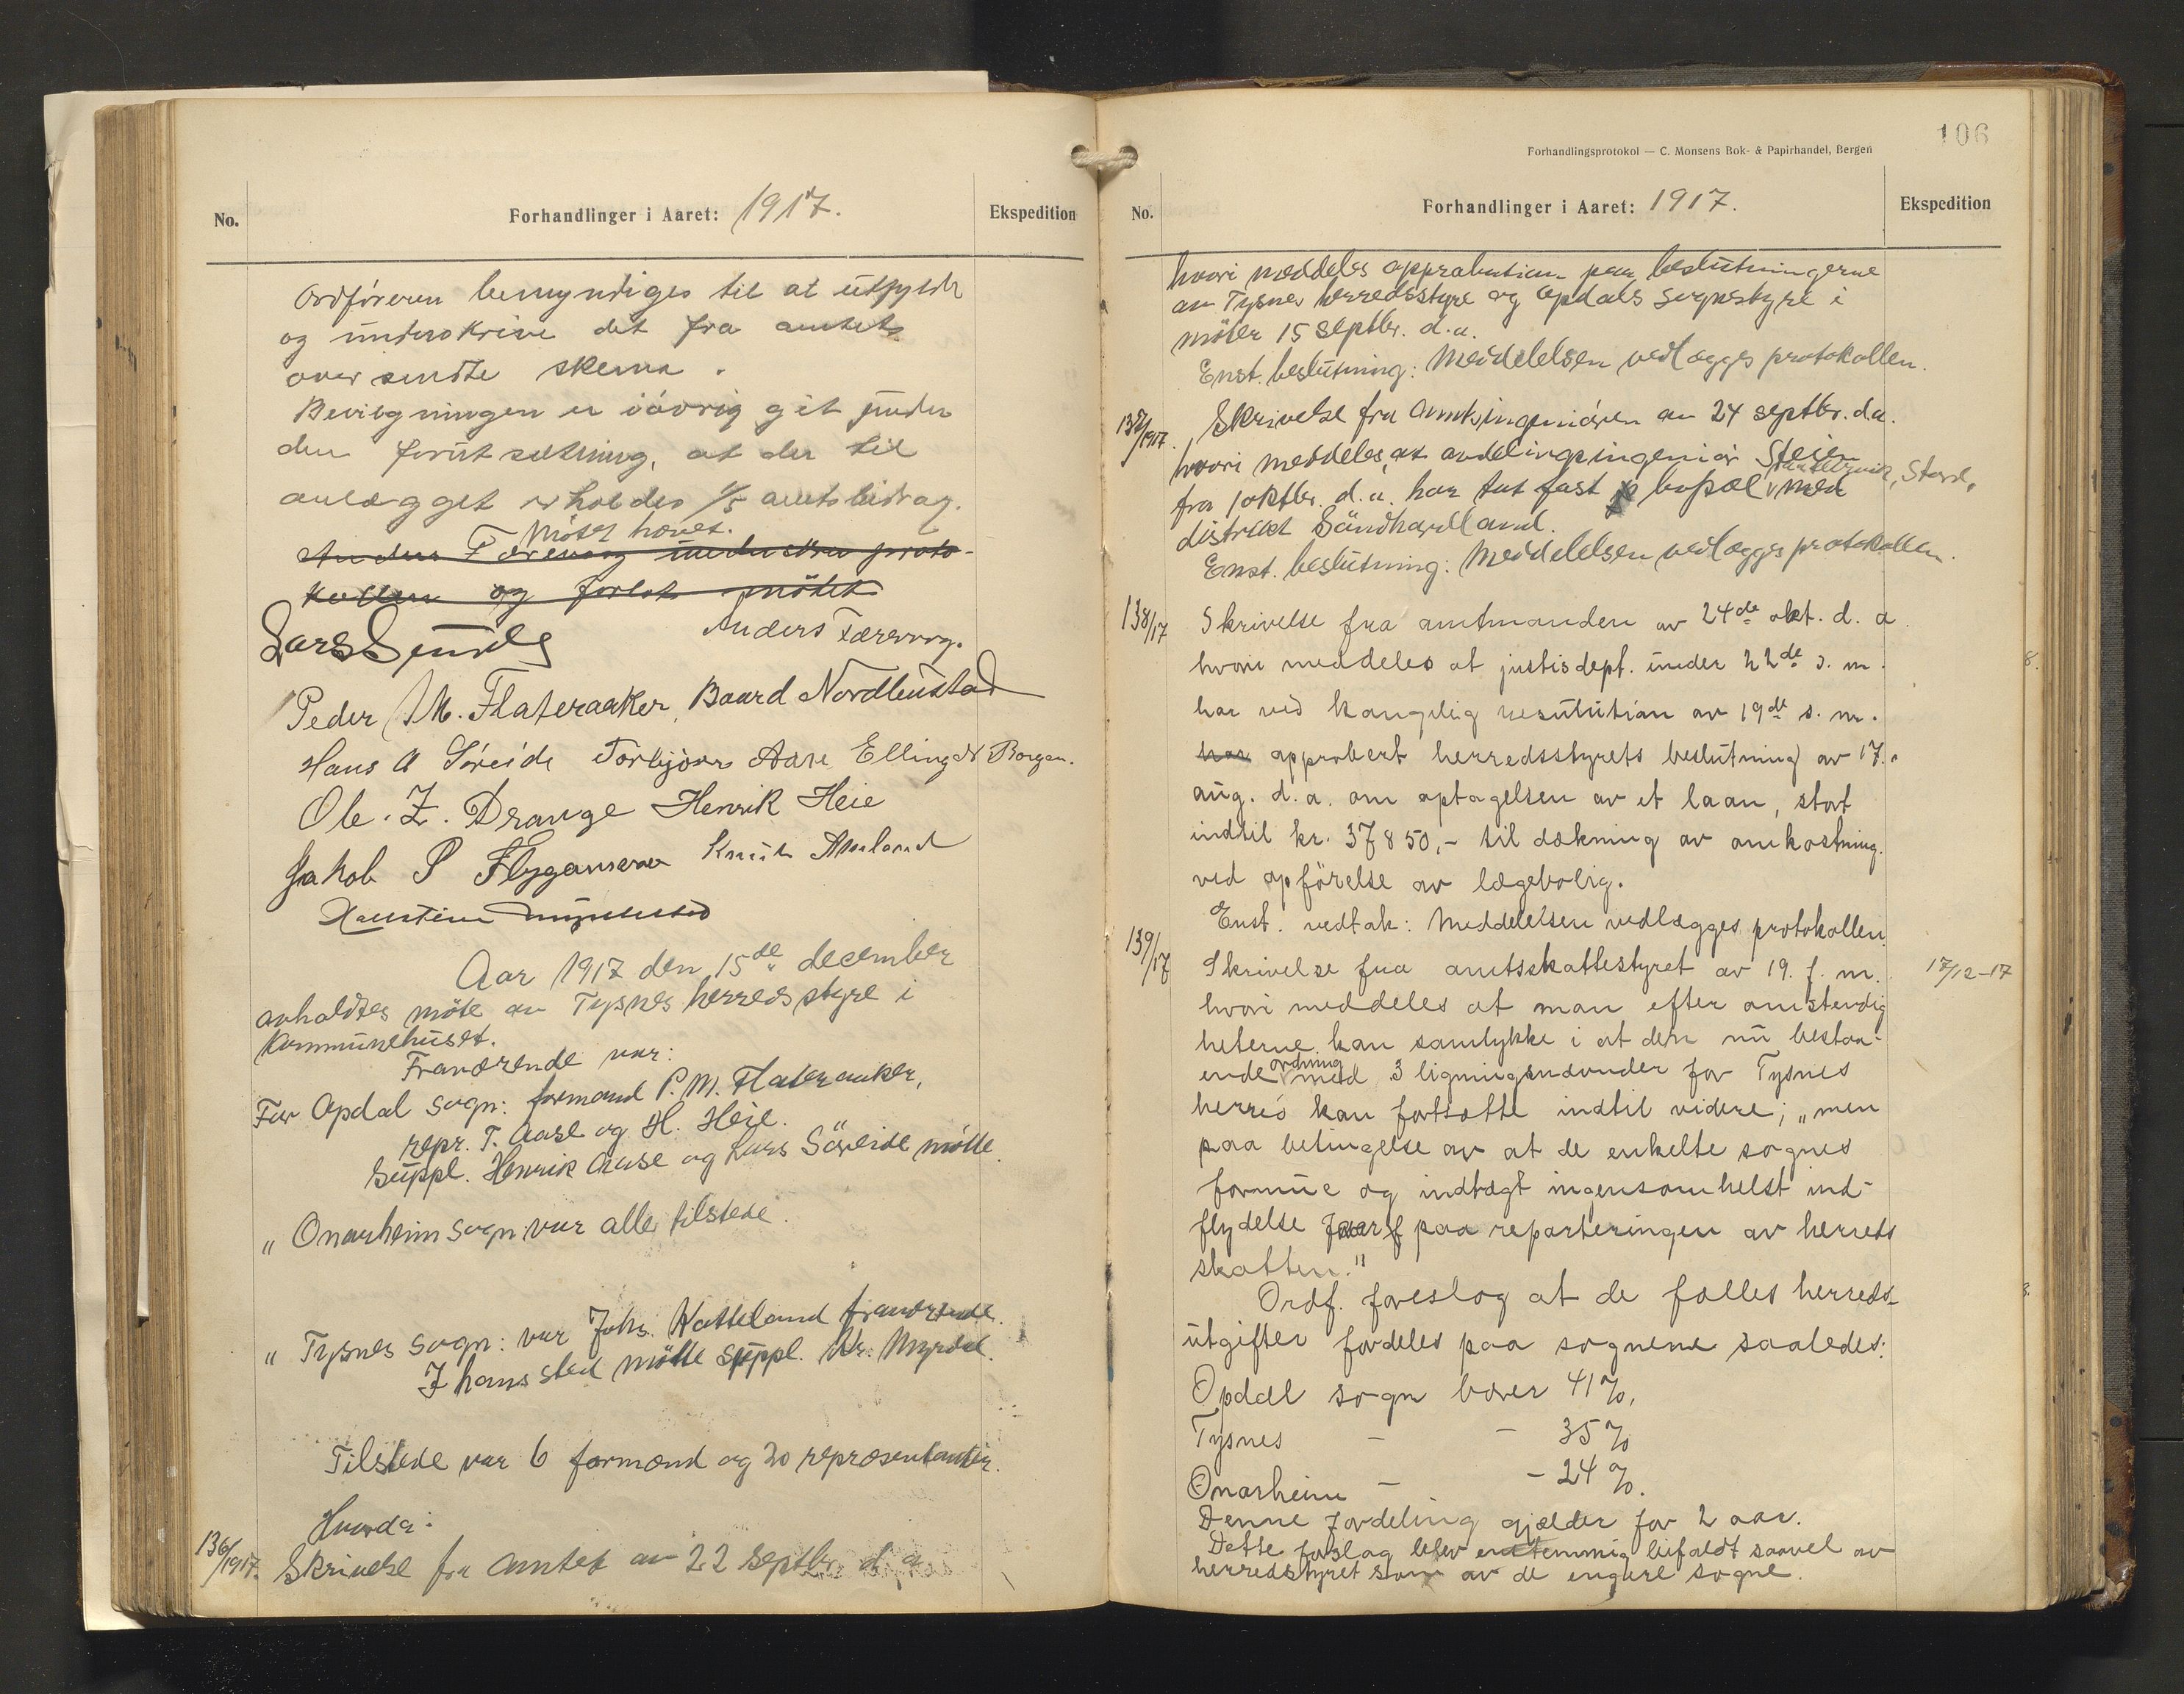 No.
Forhandlinger i Aaret: 1917.
Ekspedition
Ordføreren bemyndiges til at utfylde
og underskrive det fra amtet
oversendte skema.
Bevilgningen er iøvrig git under
den forutsætning, at der til
anlægget erholdes 1/5 amtsbidrag.
Møtet hævet.
Anders Færevaag underskrev proto-
kollen og forlot møtet
Lars Sunde
Anders Færevaag.
Peder M. Flateraaker, Baard Nordhustad
Hans A Søreide Torbjørn Aase Elling N Borgen.
Ole. Z. Drange Henrik Heie
Jakob P Flygansvær Knut Amland
Aar 1917 den 15de december
avholdtes møte av Tysnes herredsstyre i
Kommunehuset.
Fraværende var:
For Opdal sogn: formand P. M. Flateraaker,
repr. T. Aase og H. Heie.
Suppl. Henrik Aase og Lars Søreide møtte.
" Onarheim sogn: var alle tilstede.
" Tysnes sogn: var Johs. Hatteland fraværende.
I hans sted møtte suppl. Kr. Myrdal.
Tilstede var 6 formænd og 20 repræsentanter.
Hvorda:
136/1917. Skrivelse fra Amtet av 22 septbr. d. a.
106
Forhandlingsprotokol — C. Monsens Bok- & Papirhandel, Bergen
No.
Forhandlinger i Aaret: 1917.
Ekspedition
hvori meddeles approbation paa beslutningerne
av Tysnes herredsstyre og Opdals sognstyre i
møter 15 septbr. d.a.
Enst. beslutning: Meddelelsen vedlægges protokollen.
137/1917. Skrivelse fra Amtsingeniøren av 24 septbr. d.a.
hvori meddeles, at avdelingsingeniør Steien
fra 1 oktbr. d.a. har tat fast bopæl Stord, med
distrikt Søndhordland.
Enst. beslutning: Meddelelsen vedlægges protokollen.
138/17 Skrivelse fra amtmanden av 24de okt. d. a.
hvori meddeles at justisdept. under 22de s. m.
har ved kongelig resulution av 19de s. m.
har approbert herredsstyrets beslutning av 17.
aug. d.a. om optagelsen av et laan, stort
indtil kr. 37850,- til dækning av omkostning.
ved opførelse av lægebolig.
Enst. vedtak: Meddelelsen vedlægges protokollen.
139/17 Skrivelse fra amtsskattestyret av 19. f. m. 17/12-17
hvori meddeles at man efter omstendig
heterne kan samtykke i at den nu bestaa-
ende ordning med 3 ligningsnævnder for Tysnes
herred kan fortsætte indtil videre; „men
paa betingelse av at de enkelte sognes
formue og indtægt ingensomhelst ind-
flydelse faar paa reparteringen av herreds
skatten."
Ordf. foreslog at de fælles herreds-
utgifter fordeles paa sognene saaledes:
Opdal sogn bærer 41%,
Tysnes - - 35%
Onarheim - - 24%.
Denne fordeling gjælder for 2 aar.
Dette forslag blev enstemmig bifaldt saavel av
herredstyret som av de engere sogne.